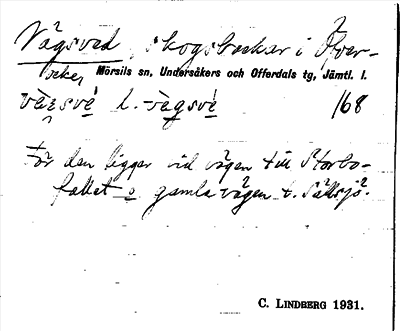 Vågsved, skogsbacke i Över-
backen Mörsils sn, Undersåkers och Offerdals tg, Jämtl. l.
l. 168
För den ligger vid vägen till Storbo-
fallet o gamla vägen t. Sällsjö.
C. LINDBERG 1931.